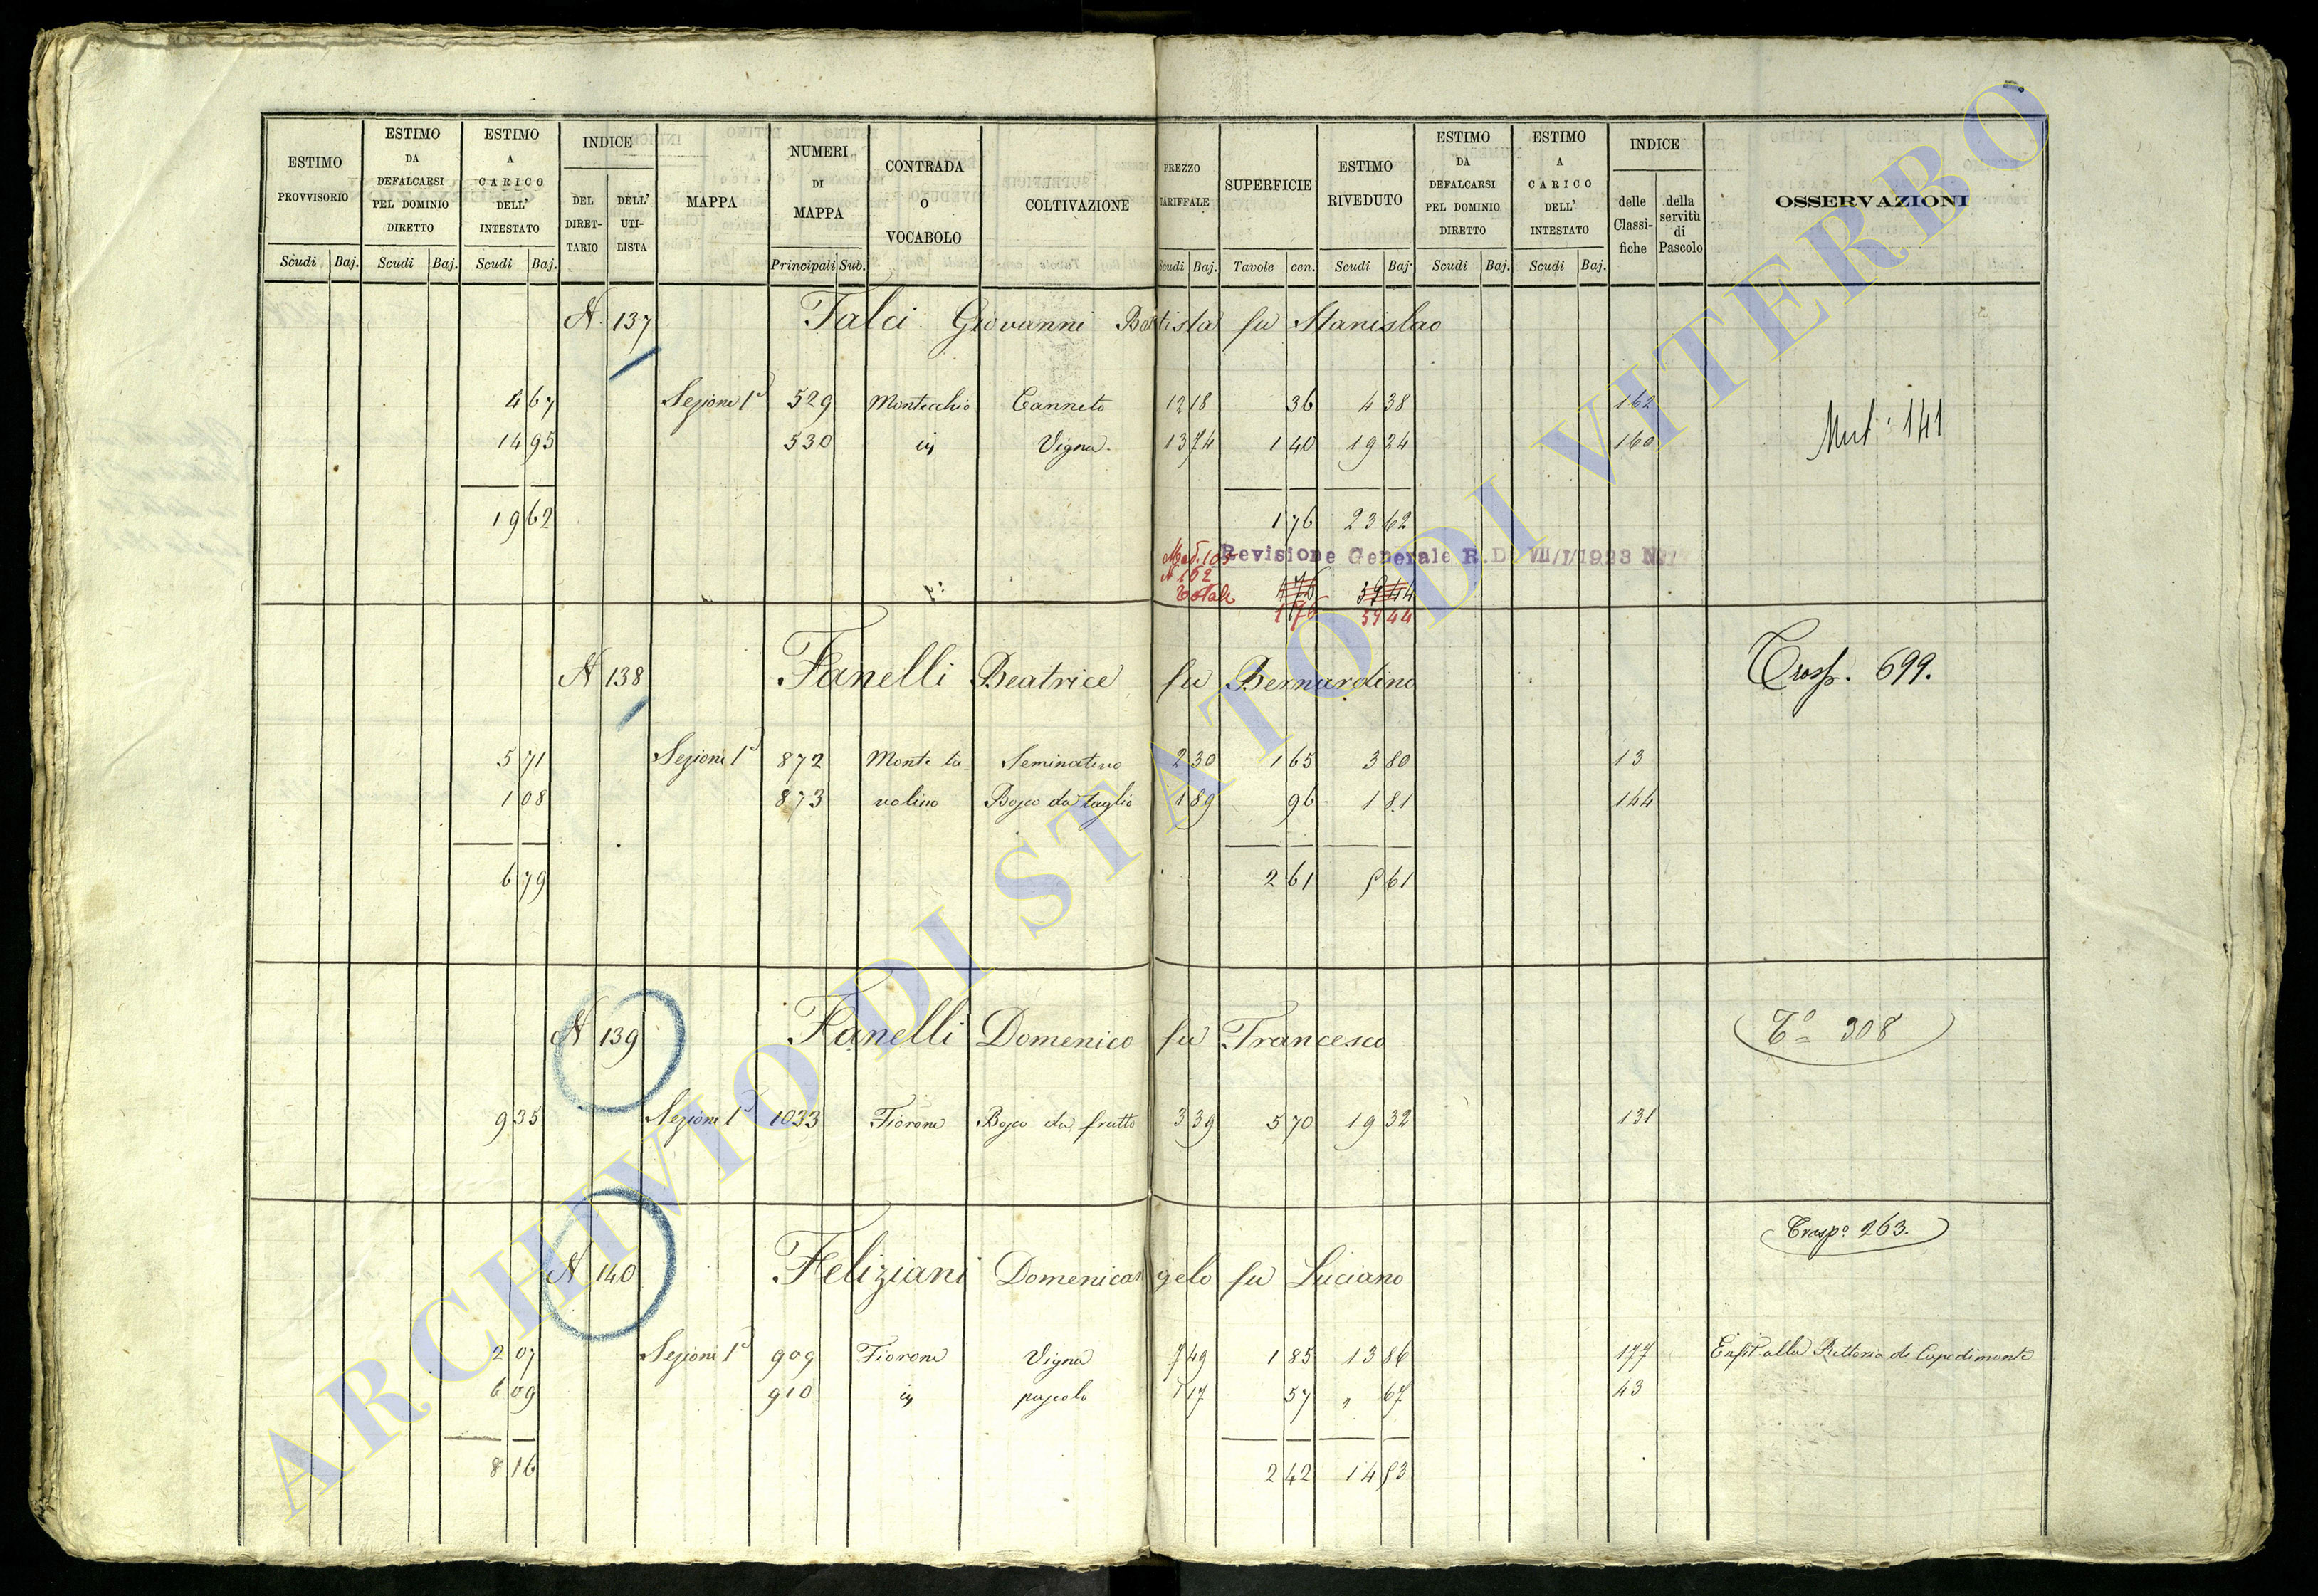 ESTIMO PROVVISORIO Scudi Baj.
ESTIMO DA DEFALCARSI PEL DOMINIO DIRETTO Scudi Baj.
ESTIMO A CARICO DELL' INTESTATO Scudi Baj.
INDICE DEL DIRET-TARIO DELL' UTI-LISTA
MAPPA
NUMERI DI MAPPA Principali Sub.
CONTRADA O VOCABOLO
COLTIVAZIONE
PREZZO TARIFFALE Scudi Baj.
SUPERFICIE Tavole cen.
ESTIMO RIVEDUTO Scudi Baj.
ESTIMO DA DEFALCARSI PEL DOMINIO DIRETTO Scudi Baj.
ESTIMO A CARICO DELL' INTESTATO Scudi Baj.
INDICE delle Classi-fiche della servitù di Pascolo
OSSERVAZIONI
N. 137 Falci Giovanni Battista fu Stanislao
4 67 Sezione 1ª 529 Montecchio Canneto 12 18 36 4 38 162
14 95 530 id Vigna 13 74 1 40 19 24 160 Mut. 141
19 62 1 76 23 62
Revisione Generale R.D. VII/I/1923 N.
N 162
Totale 1 76 39 44
1 76 39 44
N 138 Fanelli Beatrice fu Bernardino Trasp. 699.
5 71 Sezione 1ª 872 Monte ta- Seminativo 2 30 1 65 3 80 13
1 08 873 volino Bosco da taglio 1 89 96 1 81 144
6 79 2 61 5 61
N 139 Fanelli Domenico fu Francesco Tº 308
9 35 Sezione 1ª 1033 Fiorone Bosco da frutto 3 39 5 70 19 32 131
Traspº 263.
N 140 Feliziani Domenicangelo fu Luciano
2 07 Sezione 1ª 909 Fiorone Vigna 7 49 1 85 13 86 177 Enfit alla Rettoria di Capodimonte
6 09 910 id pascolo 1 17 57 " 67 43
8 16 2 42 14 53
ARCHIVIO DI STATO DI VITERBO